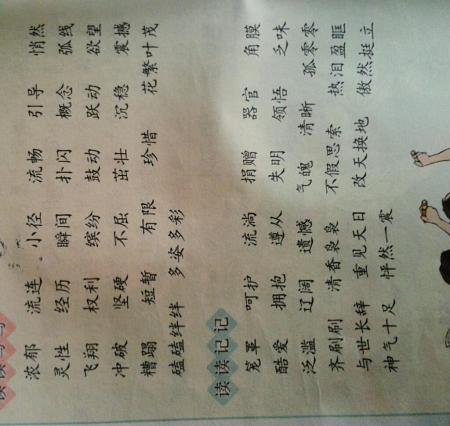 读读写写
浓郁 流连 小径 流畅 引导 悄然
灵性 经历 瞬间 扑闪 概念 弧线
飞翔 权利 缤纷 鼓动 跃动 欲望
冲破 坚硬 不屈 茁壮 沉稳 震撼
糟蹋 短暂 有限 珍惜 花繁叶茂
磕磕绊绊 多姿多彩
读读记记
笼罩 呵护 流淌 捐赠 器官 角膜
酷爱 拥抱 遵从 失明 领悟 乏味
泛滥 辽阔 遗憾 气魄 清晰 孤零零
齐刷刷 清香袅袅 不假思索 热泪盈眶
与世长辞 重见天日 改天换地 傲然挺立
神气十足 怦然一震